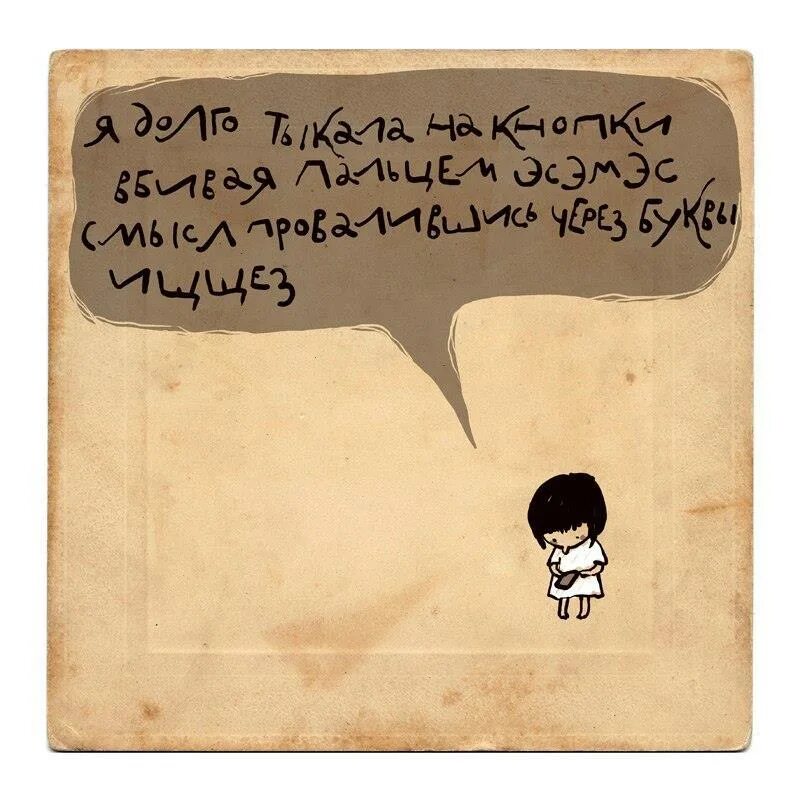 я долго тыкала на кнопки
вбивая пальцем эсэмэс
смысл провалившись через буквы
ищщез